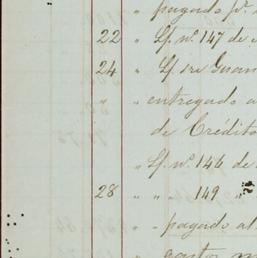 " pagado pr.
22 " Lf. nº 147 de
24 " Lf. sre Guan
" " entregado a
de Crédito
" Lf. nº 146 de
28 " " 149 "
" pagado al
gastos m